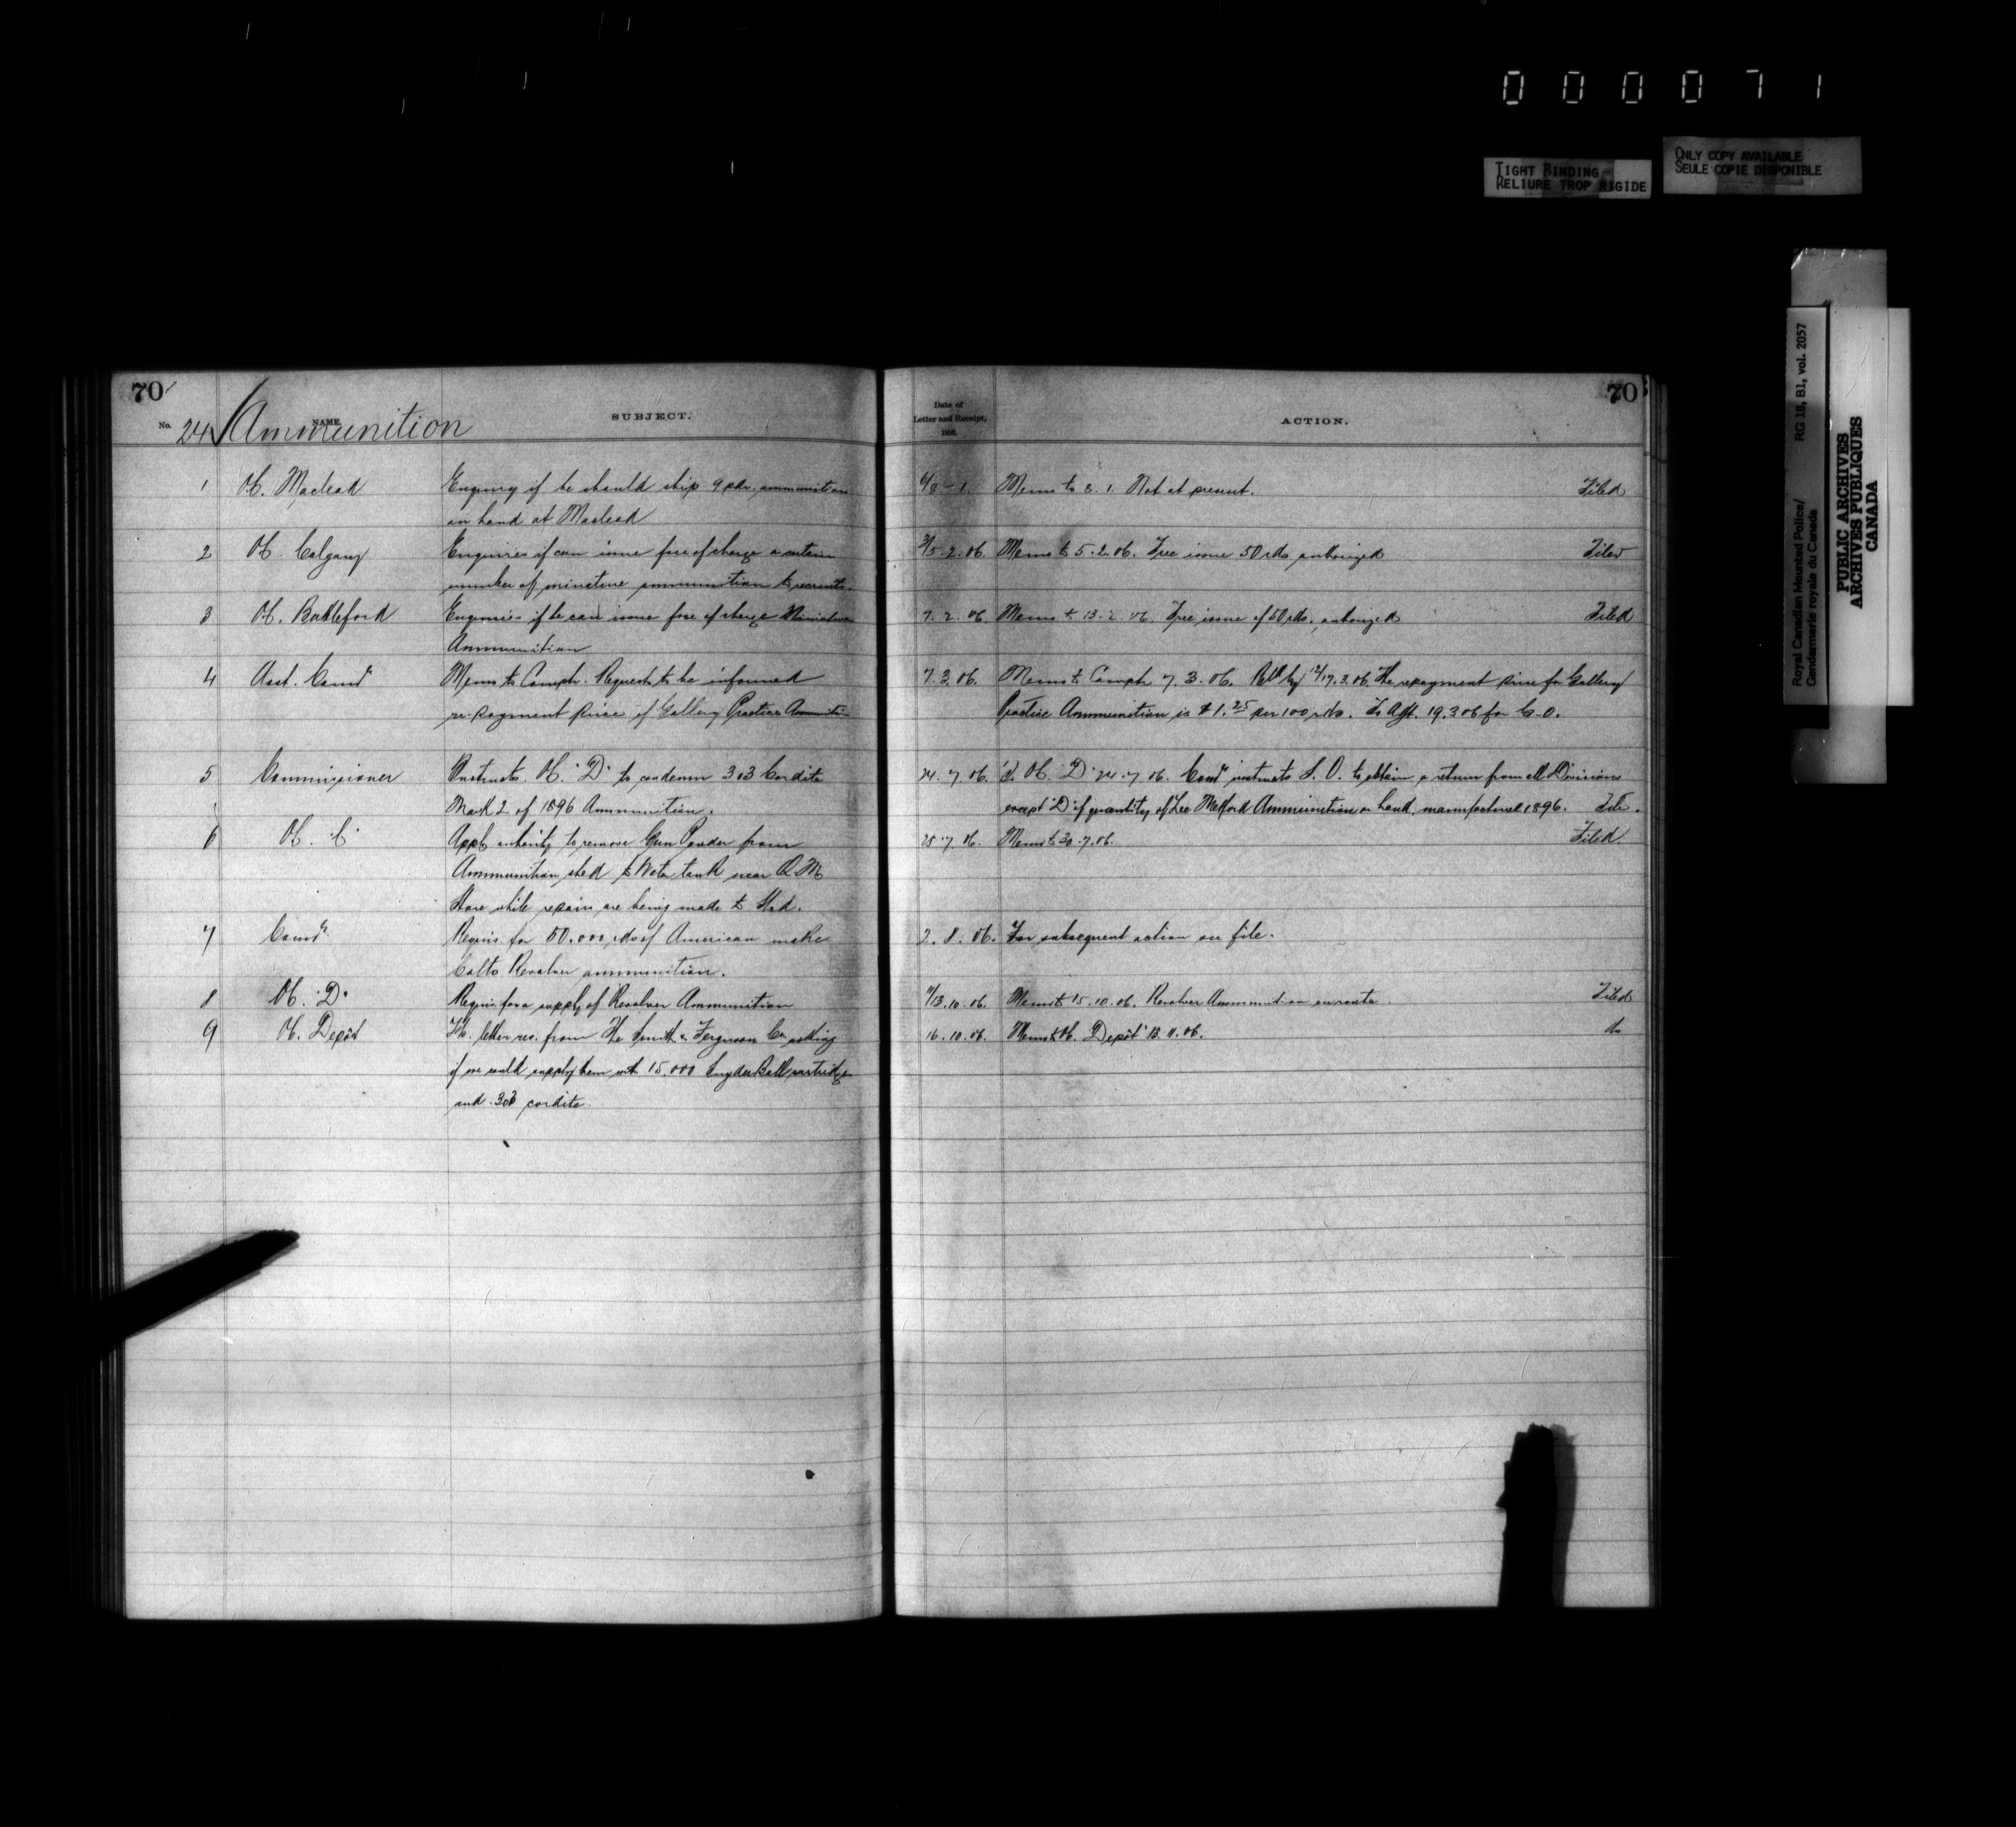 000071
TIGHT BINDING
RELIURE TROP RIGIDE
ONLY COPY AVAILABLE
SEULE COPIE DISPONIBLE
Royal Canadian Mounted Police/ RG 18, B1, vol. 2057
Gendarmerie royale du Canada
PUBLIC ARCHIVES
ARCHIVES PUBLIQUES
CANADA
70 70
No. NAME. SUBJECT. Date of Letter and Receipt, 1906. ACTION.
24 Ammunition
1 OC. Macleod Enquiry if he should ship 9 pdr. ammunition 6/8 - 1. Memo to 8. 1. Not at present. Filed
on hand at Macleod
2 OC. Calgary Enquires if can issue free of charge a certain 3/5. 2. 06. Memo to 5. 2. 06. Free issue 50 rds authorized Filed
number of minature ammunition to recruits.
3 OC. Battleford Enquiries if he can issue free of charge Miniature 7. 2. 06 Memo to 13. 2. 06. Free issue of 50 rds. authorized Filed
Ammunition
4 Asst. Comr Memo to Compt. Requests to be informed 7. 3. 06. Memo to Compt 7. 3. 06. by 12/17. 3. 06. The repayment price for Gallery
re-payment price of Gallery Practice Ammunition Practice Ammunition is $1.25 per 100 rds. 19. 3 06 for C. O.
5 Commissioner Instructs. OC. "D" to condemn 303 Cordite 24. 7. 06. OC. "D" 24. 7. 06. Comr instructs S. O. to obtain a return from all Divisions
Mark 2 of 1896 Ammunition. except "D" of quantity of Lee Metford Ammunition on hand, manufactured 1896. File.
6 OC. C Appl. authority to remove Gun Powder from 25. 7. 06. Memo to 30. 7. 06. Filed.
Ammunition shed to Water tank near Q. M.
Store while repairs are being made to Shed.
7 Comr. Requis. for 50.000 rds of American make 2. 8. 06. For subsequent action see file.
Colts Revolver ammunition.
8 OC. "D" Requis. for a supply of Revolver Ammunition 11/13. 10. 06. Memo to 15. 10. 06. Revolver Ammunition enroute. Filed
9 OC. Depôt letter rec. from The Smith & Ferguson Co. asking 16. 10. 06. Memo to OC. Depôt 13. 11. 06. do
if we could supply them with 15.000 Snyder Ball cartridges
and .303 cordite.